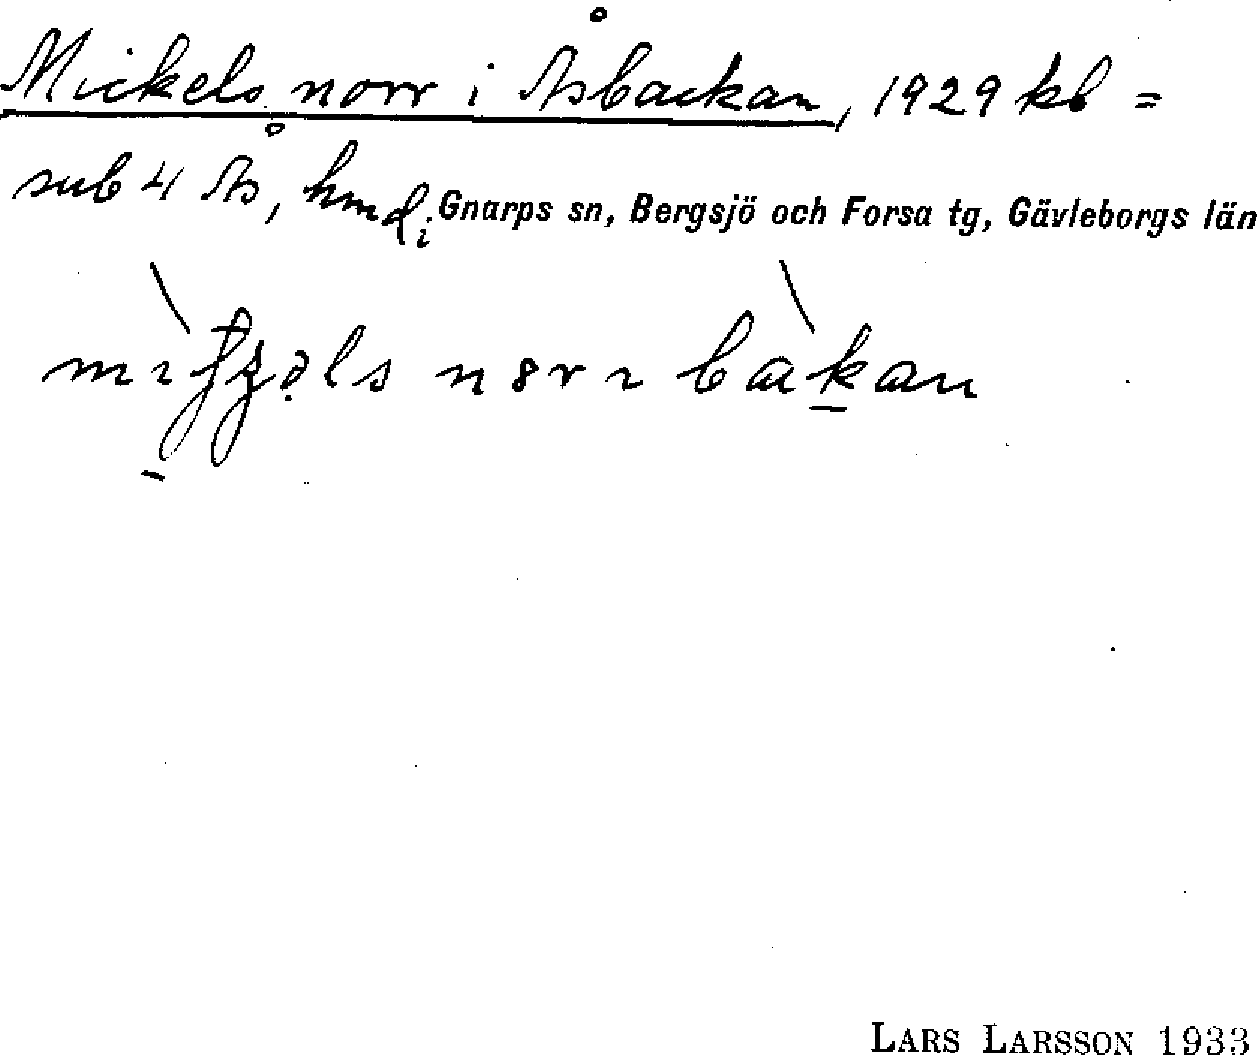 Mickels norr i Åsbackan, 1929 kb =
sub 4 Ås, hmd i Gnarps sn, Bergsjö och Forsa tg, Gävleborgs län
LARS LARSSON 1933